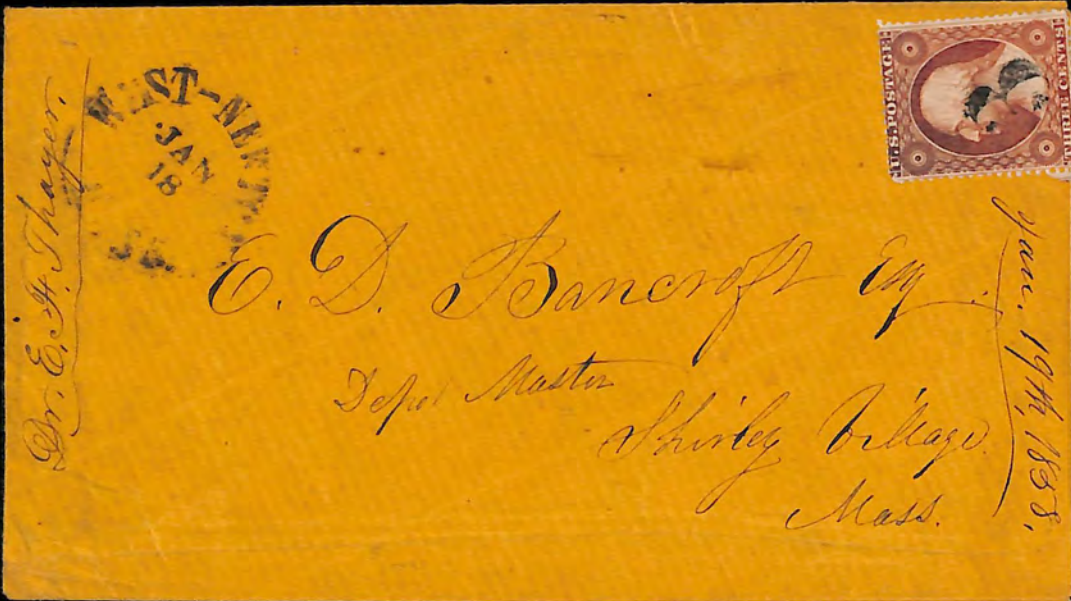 Dr. E. F. Thayer.
JAN
18
U.S. POSTAGE
THREE CENTS
E. D. Bancroft Esq.
Depot Master
Shirley Village
Mass.
Jan. 19th, 1858.